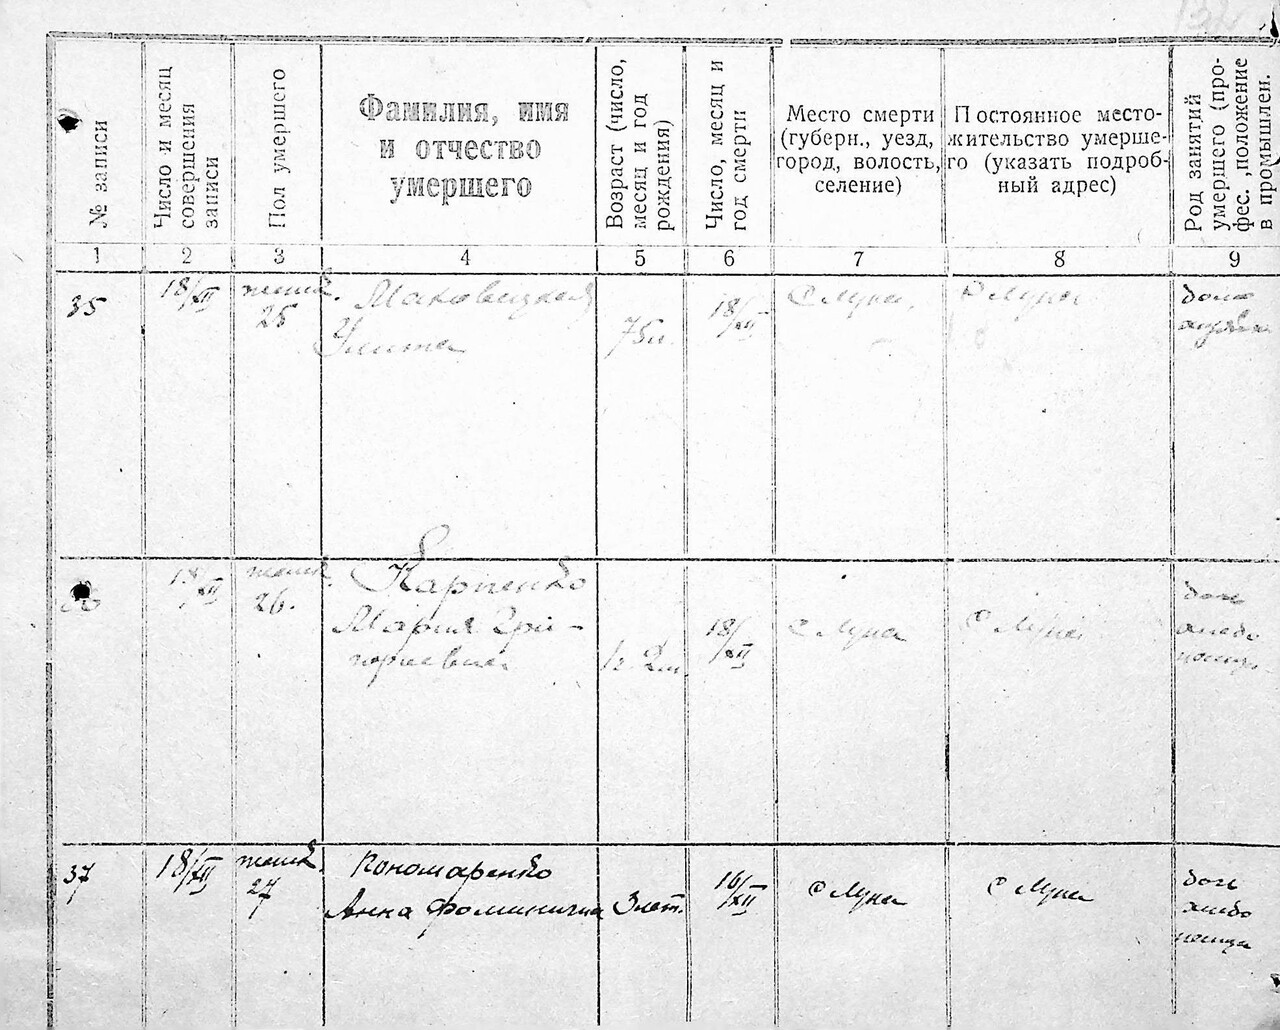 № записи
Число и месяц
совершения
записи
Пол умершего
Фамилия, имя
и отчество
умершего
Возраст (число,
месяц и год
рождения)
Число, месяц и
год смерти
Место смерти
(губерн., уезд,
город, волость,
селение)
Постоянное место-
жительство умерше-
го (указать подроб-
ный адрес)
Род занятий
умершего (про-
фес. ,положение
в промышлен.
1 2 3 4 5 6 7 8 9
35
18/XII
женск.
25
Маковецкая
Улита
75л.
18/XII
с Лука
с Лука
18/XII
женск.
26.
Карпенко
Мария Гри-
горьевна
18/XII
с Лука
с Лука
37
18/XII
женск.
27
Пономаренко
Анна Фоминична
3 лет.
16/XII
с Лука
с Лука